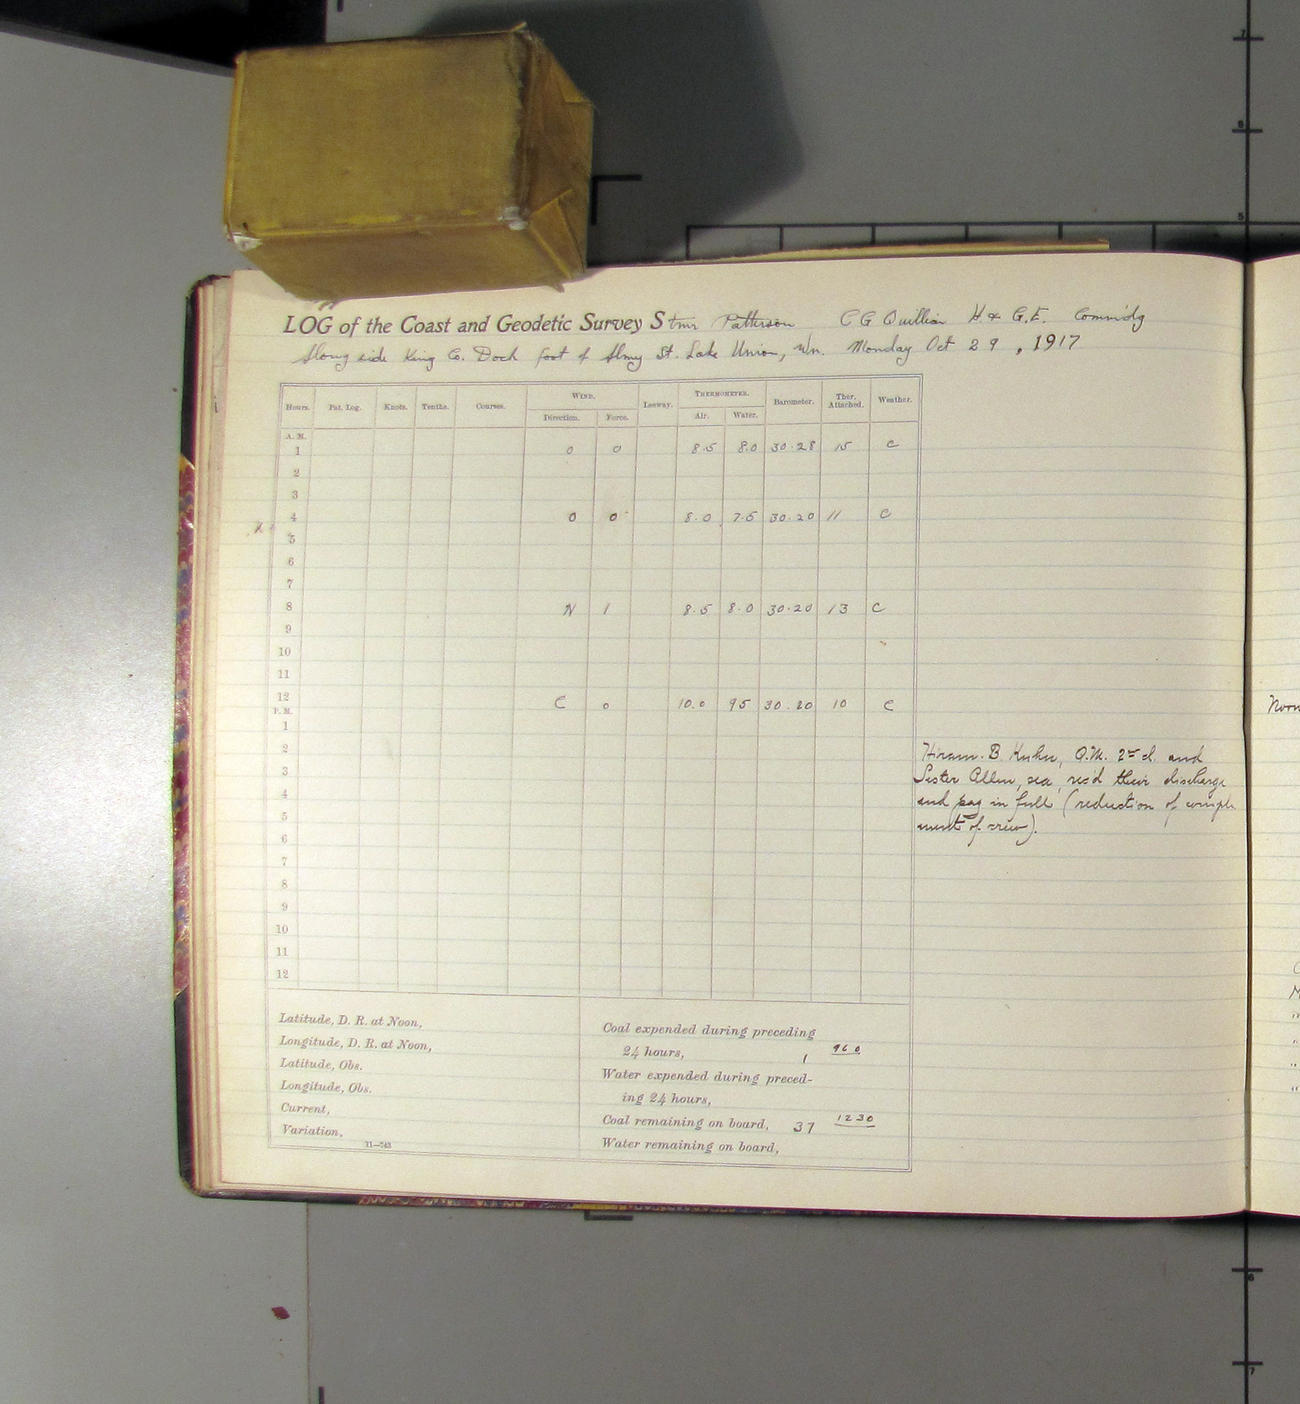 LOG of the Coast and Geodetic Survey Stmr Patterson C G Quillian H & G.E. Commd'g
Along side King Co. Dock foot of St. Lake Union, Wn. Monday Oct 29, 1917
Hours. Pat. Log. Knots. Tenths. Courses. WIND. Leeway. THERMOMETER. Barometer. Ther. Attached. Weather.
Direction. Force. Air. Water.
A. M.
1 0 0 8.5 8.0 30.28 15 C
2
3
4 0 0 8.0 7.5 30.20 11 C
5
6
7
8 N 1 8.5 8.0 30.20 13 C
9
10
11
12 C 0 10.0 95 30.20 10 C
P. M.
1
2
3
4
5
6
7
8
9
10
11
12
Hiram. B. Kuhn, Q.M. 2nd cl. and
Lester Allen, sea, rec'd their discharge
and pay in full (reduction of comple
ment of crew).
Latitude, D. R. at Noon,
Longitude, D. R. at Noon,
Latitude, Obs.
Longitude, Obs.
Current,
Variation,
11—743
Coal expended during preceding
24 hours, 1 960
Water expended during preced-
ing 24 hours,
Coal remaining on board, 37 1230
Water remaining on board,
Noon